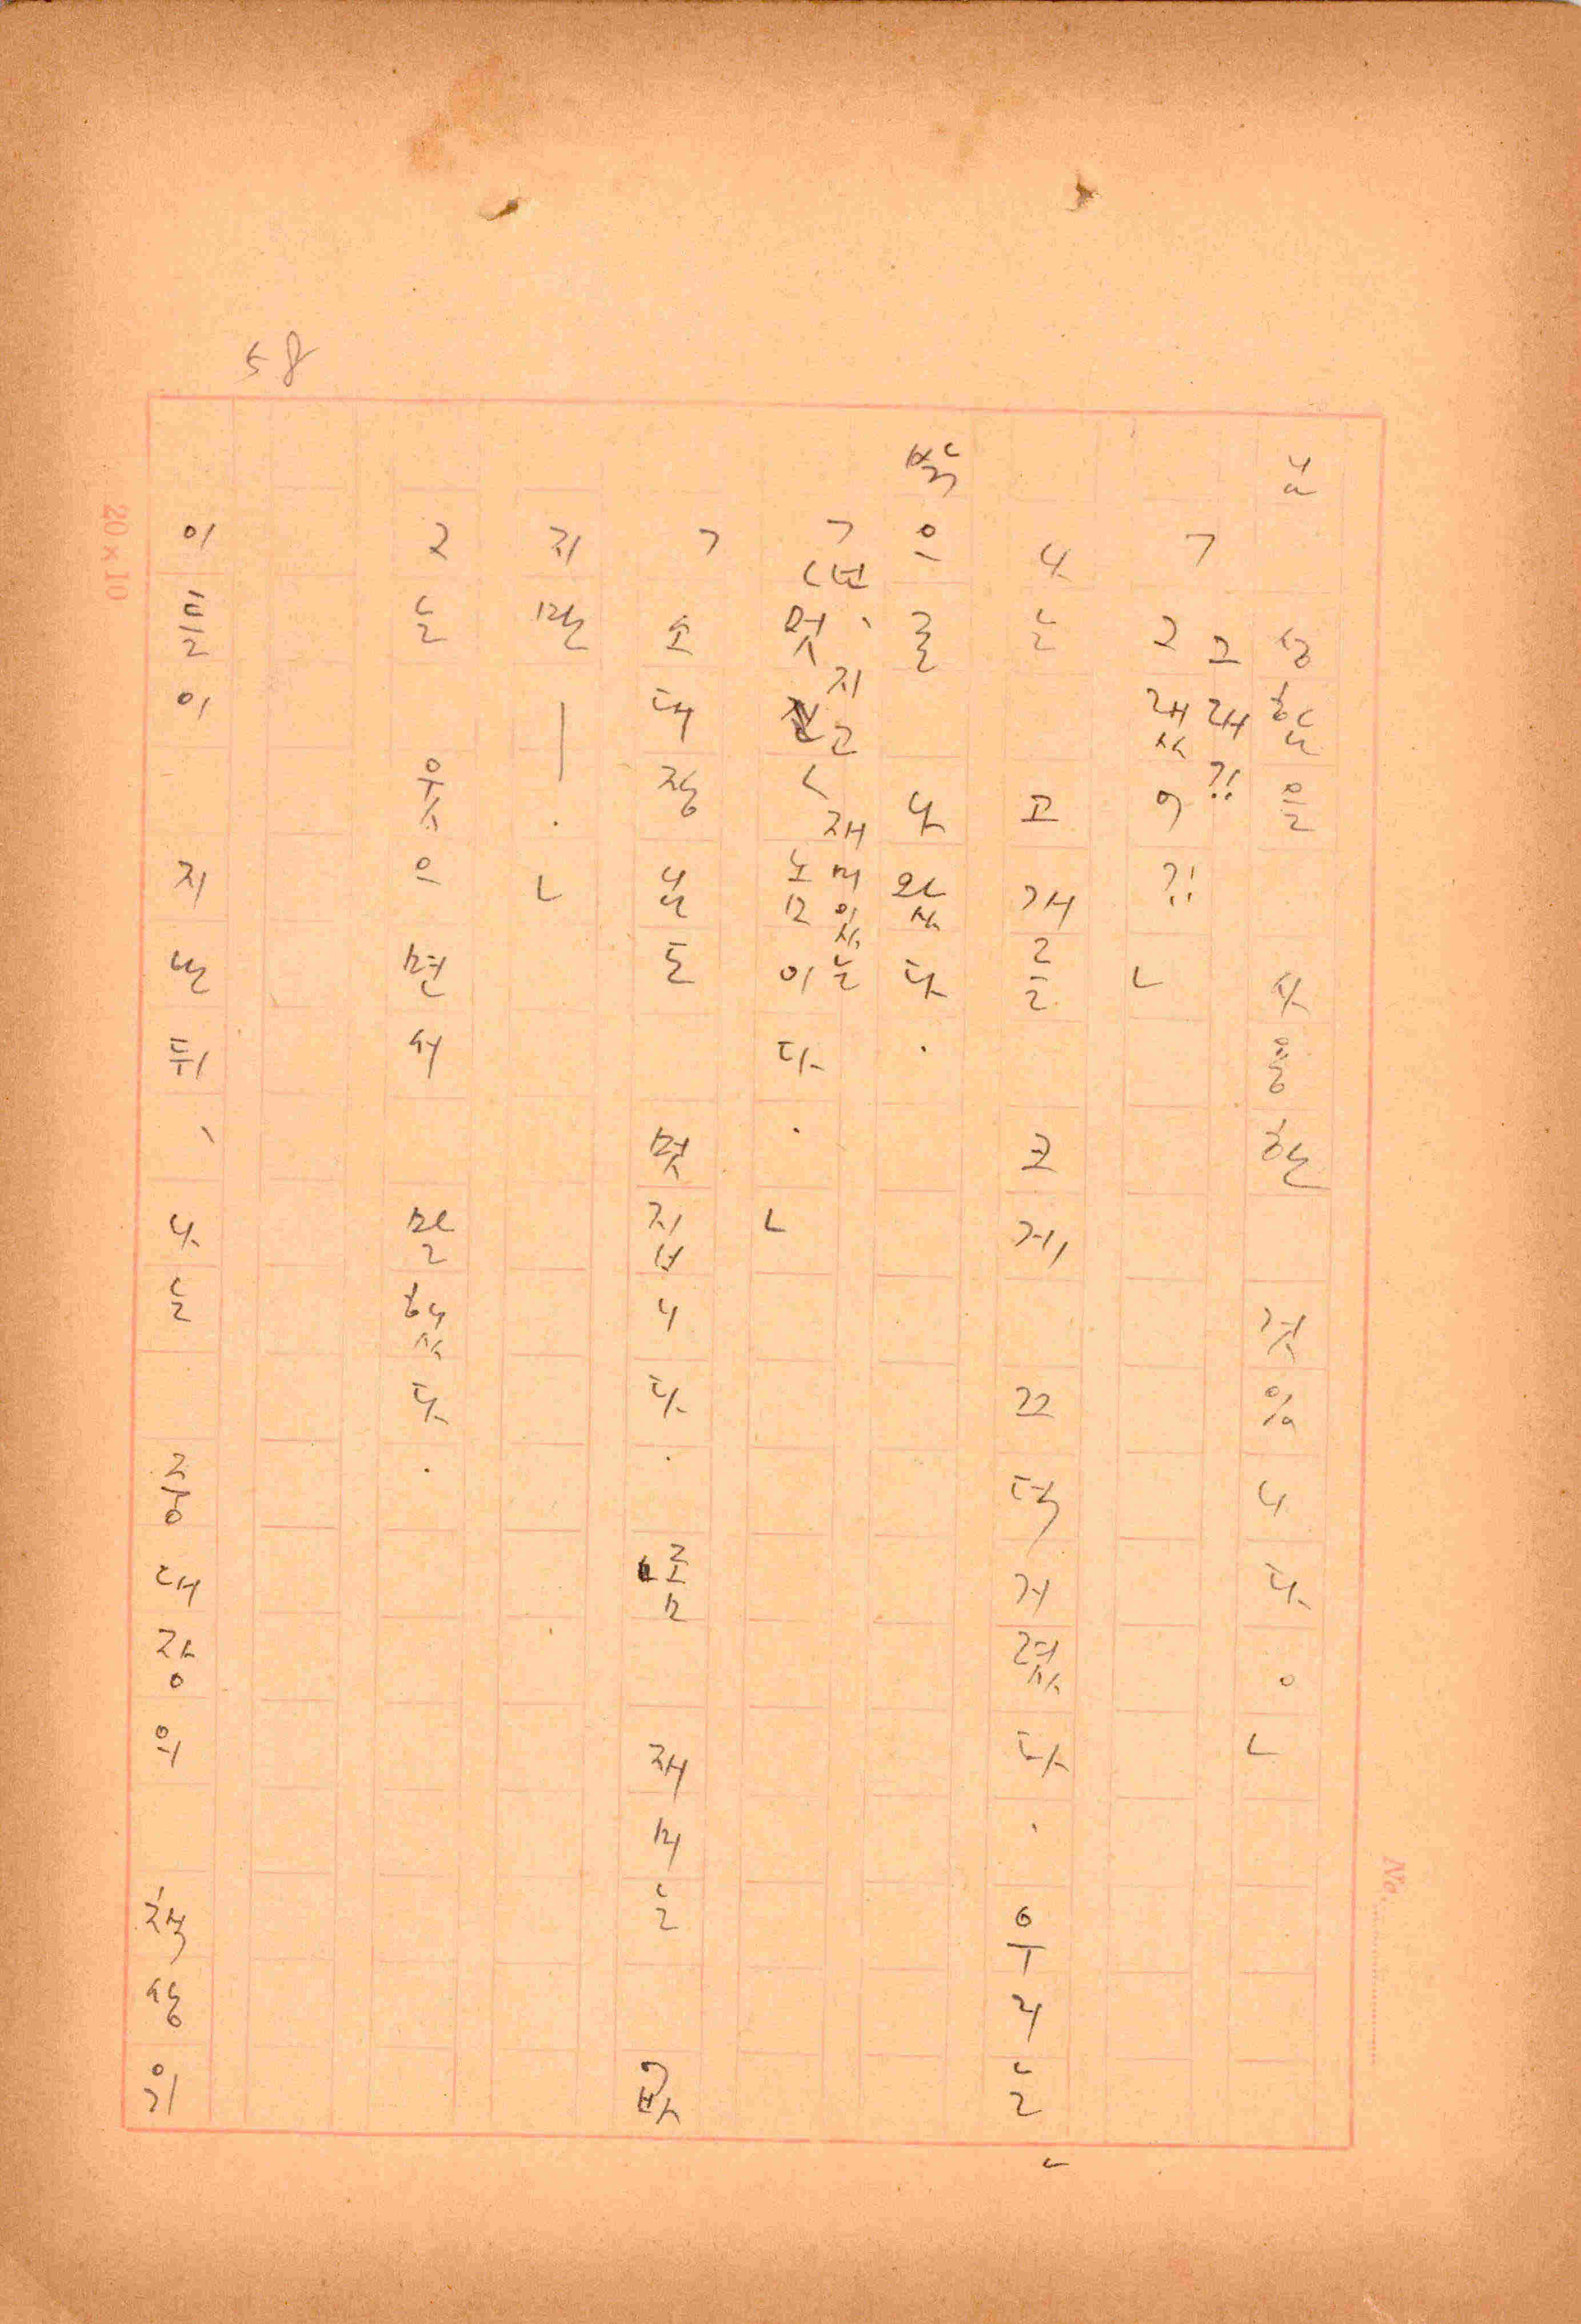 58
님 성함을 사용한 것입니다。」
「그랬어?!」
그래?!
나는 고개를 크게 끄덕거렸다. 우리는
밖으로 나왔다.
「멋지고 재미있는 놈이다.」
「소대장님도 멋집니다. 조금 재미는 없
지만―.」
그는 웃으면서 말했다.
이틀이 지난 뒤, 나는 중대장의 책상위
20×10
No.